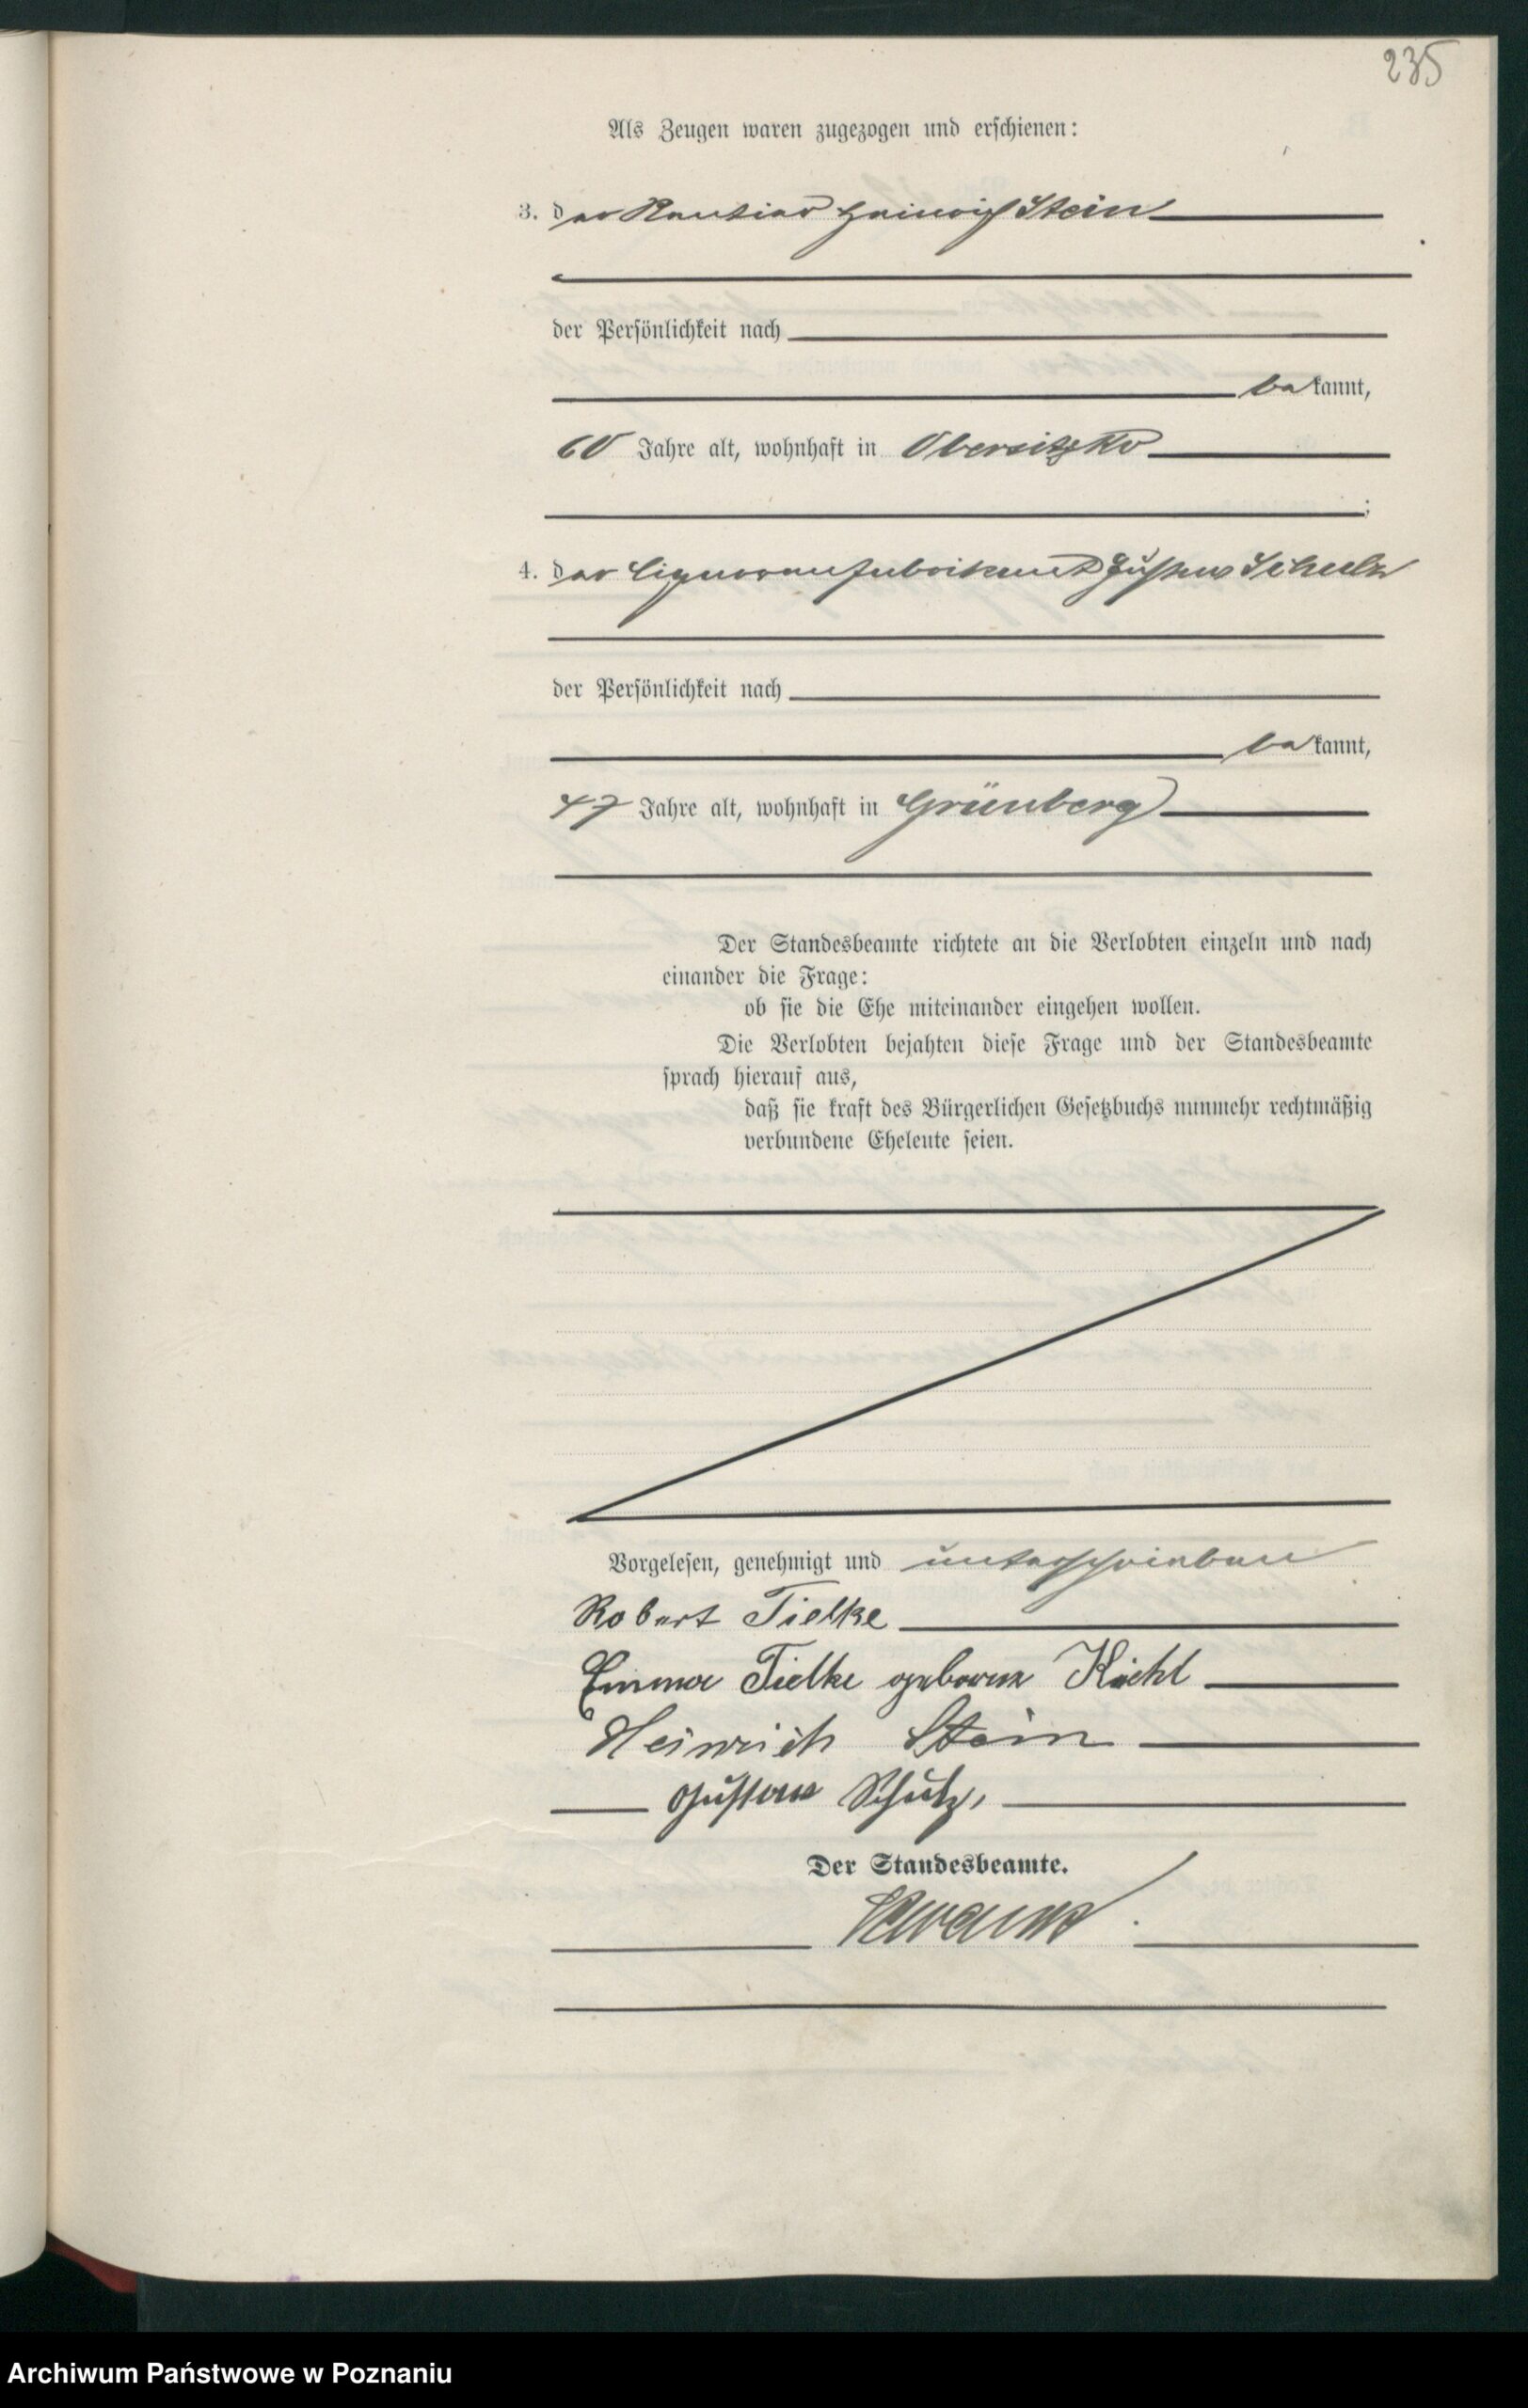 235
Als Zeugen waren zugezogen und erschienen:
3. der Rentier Heinrich Stein
der Persönlichkeit nach
bekannt,
60 Jahre alt, wohnhaft in Obersitzko
;
4. der Liquerenfabrikant Gustav Schulz
der Persönlichkeit nach
bekannt,
47 Jahre alt, wohnhaft in Grünberg
Der Standesbeamte richtete an die Verlobten einzeln und nach
einander die Frage:
ob sie die Ehe miteinander eingehen wollen.
Die Verlobten bejahten diese Frage und der Standesbeamte
sprach hierauf aus,
daß sie kraft des Bürgerlichen Gesetzbuchs nunmehr rechtmäßig
verbundene Eheleute seien.
Vorgelesen, genehmigt und unterschrieben
Robert Tielke
Emma Tielke geborene Kiehl
Heinrich Stein
Gustav Schulz,
Der Standesbeamte.
Archiwum Państwowe w Poznaniu